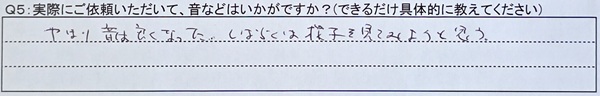 Q5:実際にご依頼いただいて、音などはいかがですか?(できるだけ具体的に教えてください)
やはり音は良くなった。しばらくは様子を見てみようと思う。